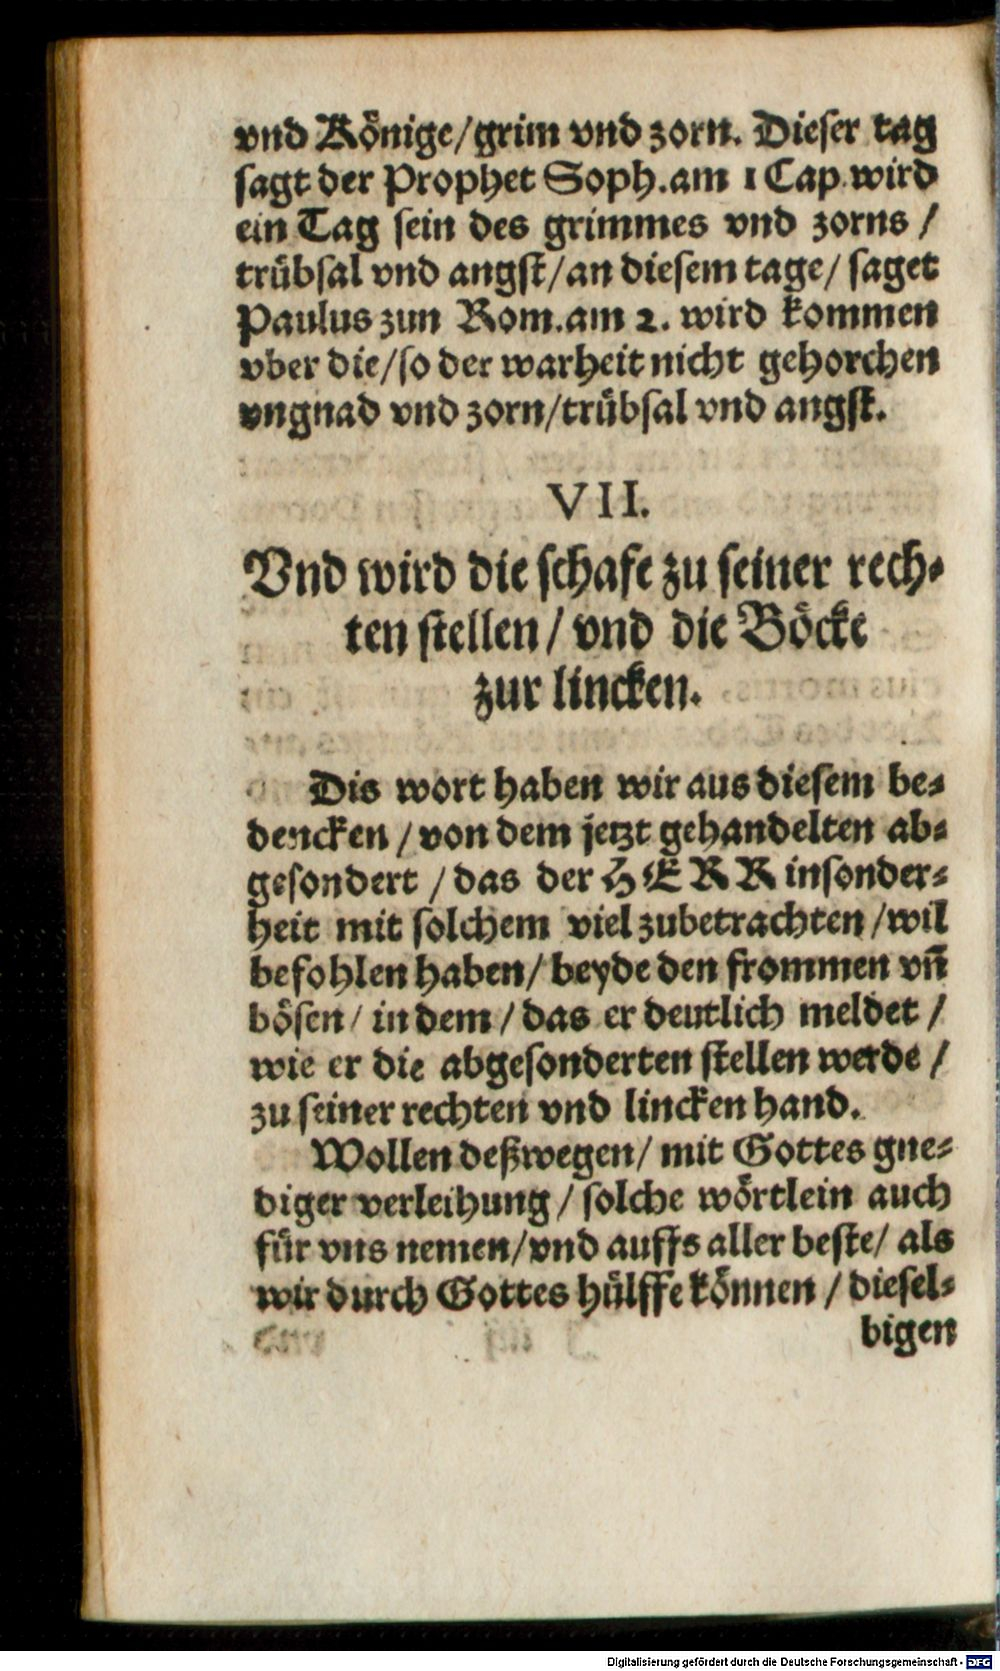 vnd Könige/grim vnd zorn. Dieser tag
sagt der Prophet Soph.am 1 Cap.wird
ein Tag sein des grimmes vnd zorns /
trübsal vnd angst/an diesem tage/ saget
Paulus zun Rom.am 2. wird kommen
vber die/so der warheit nicht gehorchen
vngnad vnd zorn/trübsal vnd angst.
VII.
Vnd wird die schafe zu seiner rech-
ten stellen / vnd die Böcke
zur lincken.
Dis wort haben wir aus diesem be-
dencken / von dem jetzt gehandelten ab-
gesondert / das der HERR insonder-
heit mit solchem viel zubetrachten /wil
befohlen haben/ beyde den frommen vñ
bösen/ in dem / das er deutlich meldet /
wie er die abgesonderten stellen werde /
zu seiner rechten vnd lincken hand.
Wollen deßwegen/ mit Gottes gne-
diger verleihung / solche wörtlein auch
für vns nemen/vnd auffs aller beste/ als
wir durch Gottes hülffe können / diesel-
bigen
Digitalisierung gefördert durch die Deutsche Forschungsgemeinschaft - DFG